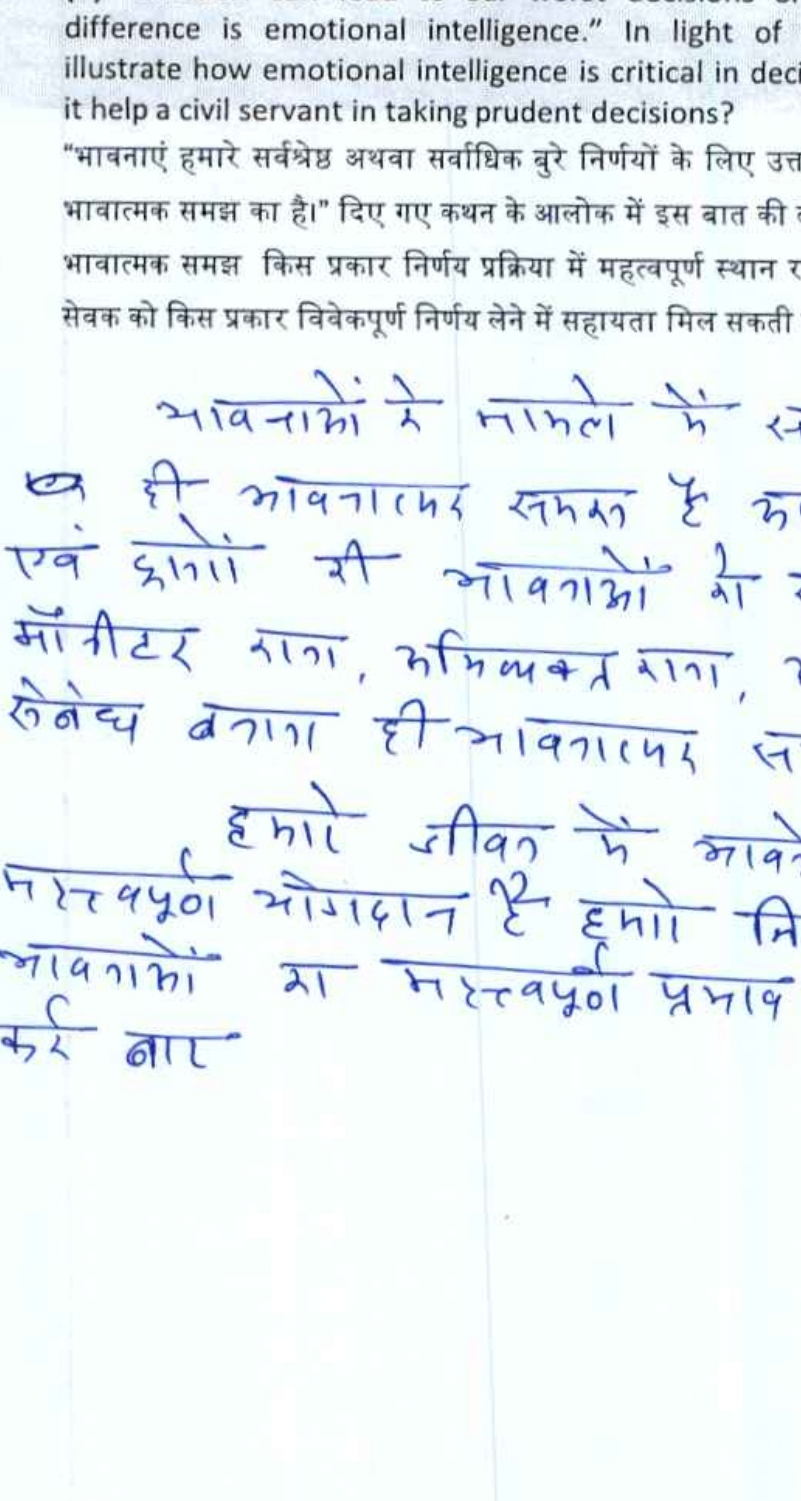 difference is emotional intelligence." In light of
illustrate how emotional intelligence is critical in deci
it help a civil servant in taking prudent decisions?
"भावनाएं हमारे सर्वश्रेष्ठ अथवा सर्वाधिक बुरे निर्णयों के लिए उत्त
भावात्मक समझ का है।" दिए गए कथन के आलोक में इस बात की
भावात्मक समझ किस प्रकार निर्णय प्रक्रिया में महत्वपूर्ण स्थान र
सेवक को किस प्रकार विवेकपूर्ण निर्णय लेने में सहायता मिल सकती
भावनाओं के मामले में
ही भावनात्मक समझ है
एवं दूसरों की भावनाओं को
मॉनीटर करना, अभिव्यक्त करना,
संबंध बनाना ही भावनात्मक स
हमारे जीवन में भावन
महत्त्वपूर्ण योगदान है हमारे नि
भावनाओं का महत्त्वपूर्ण प्रभाव
कई बार